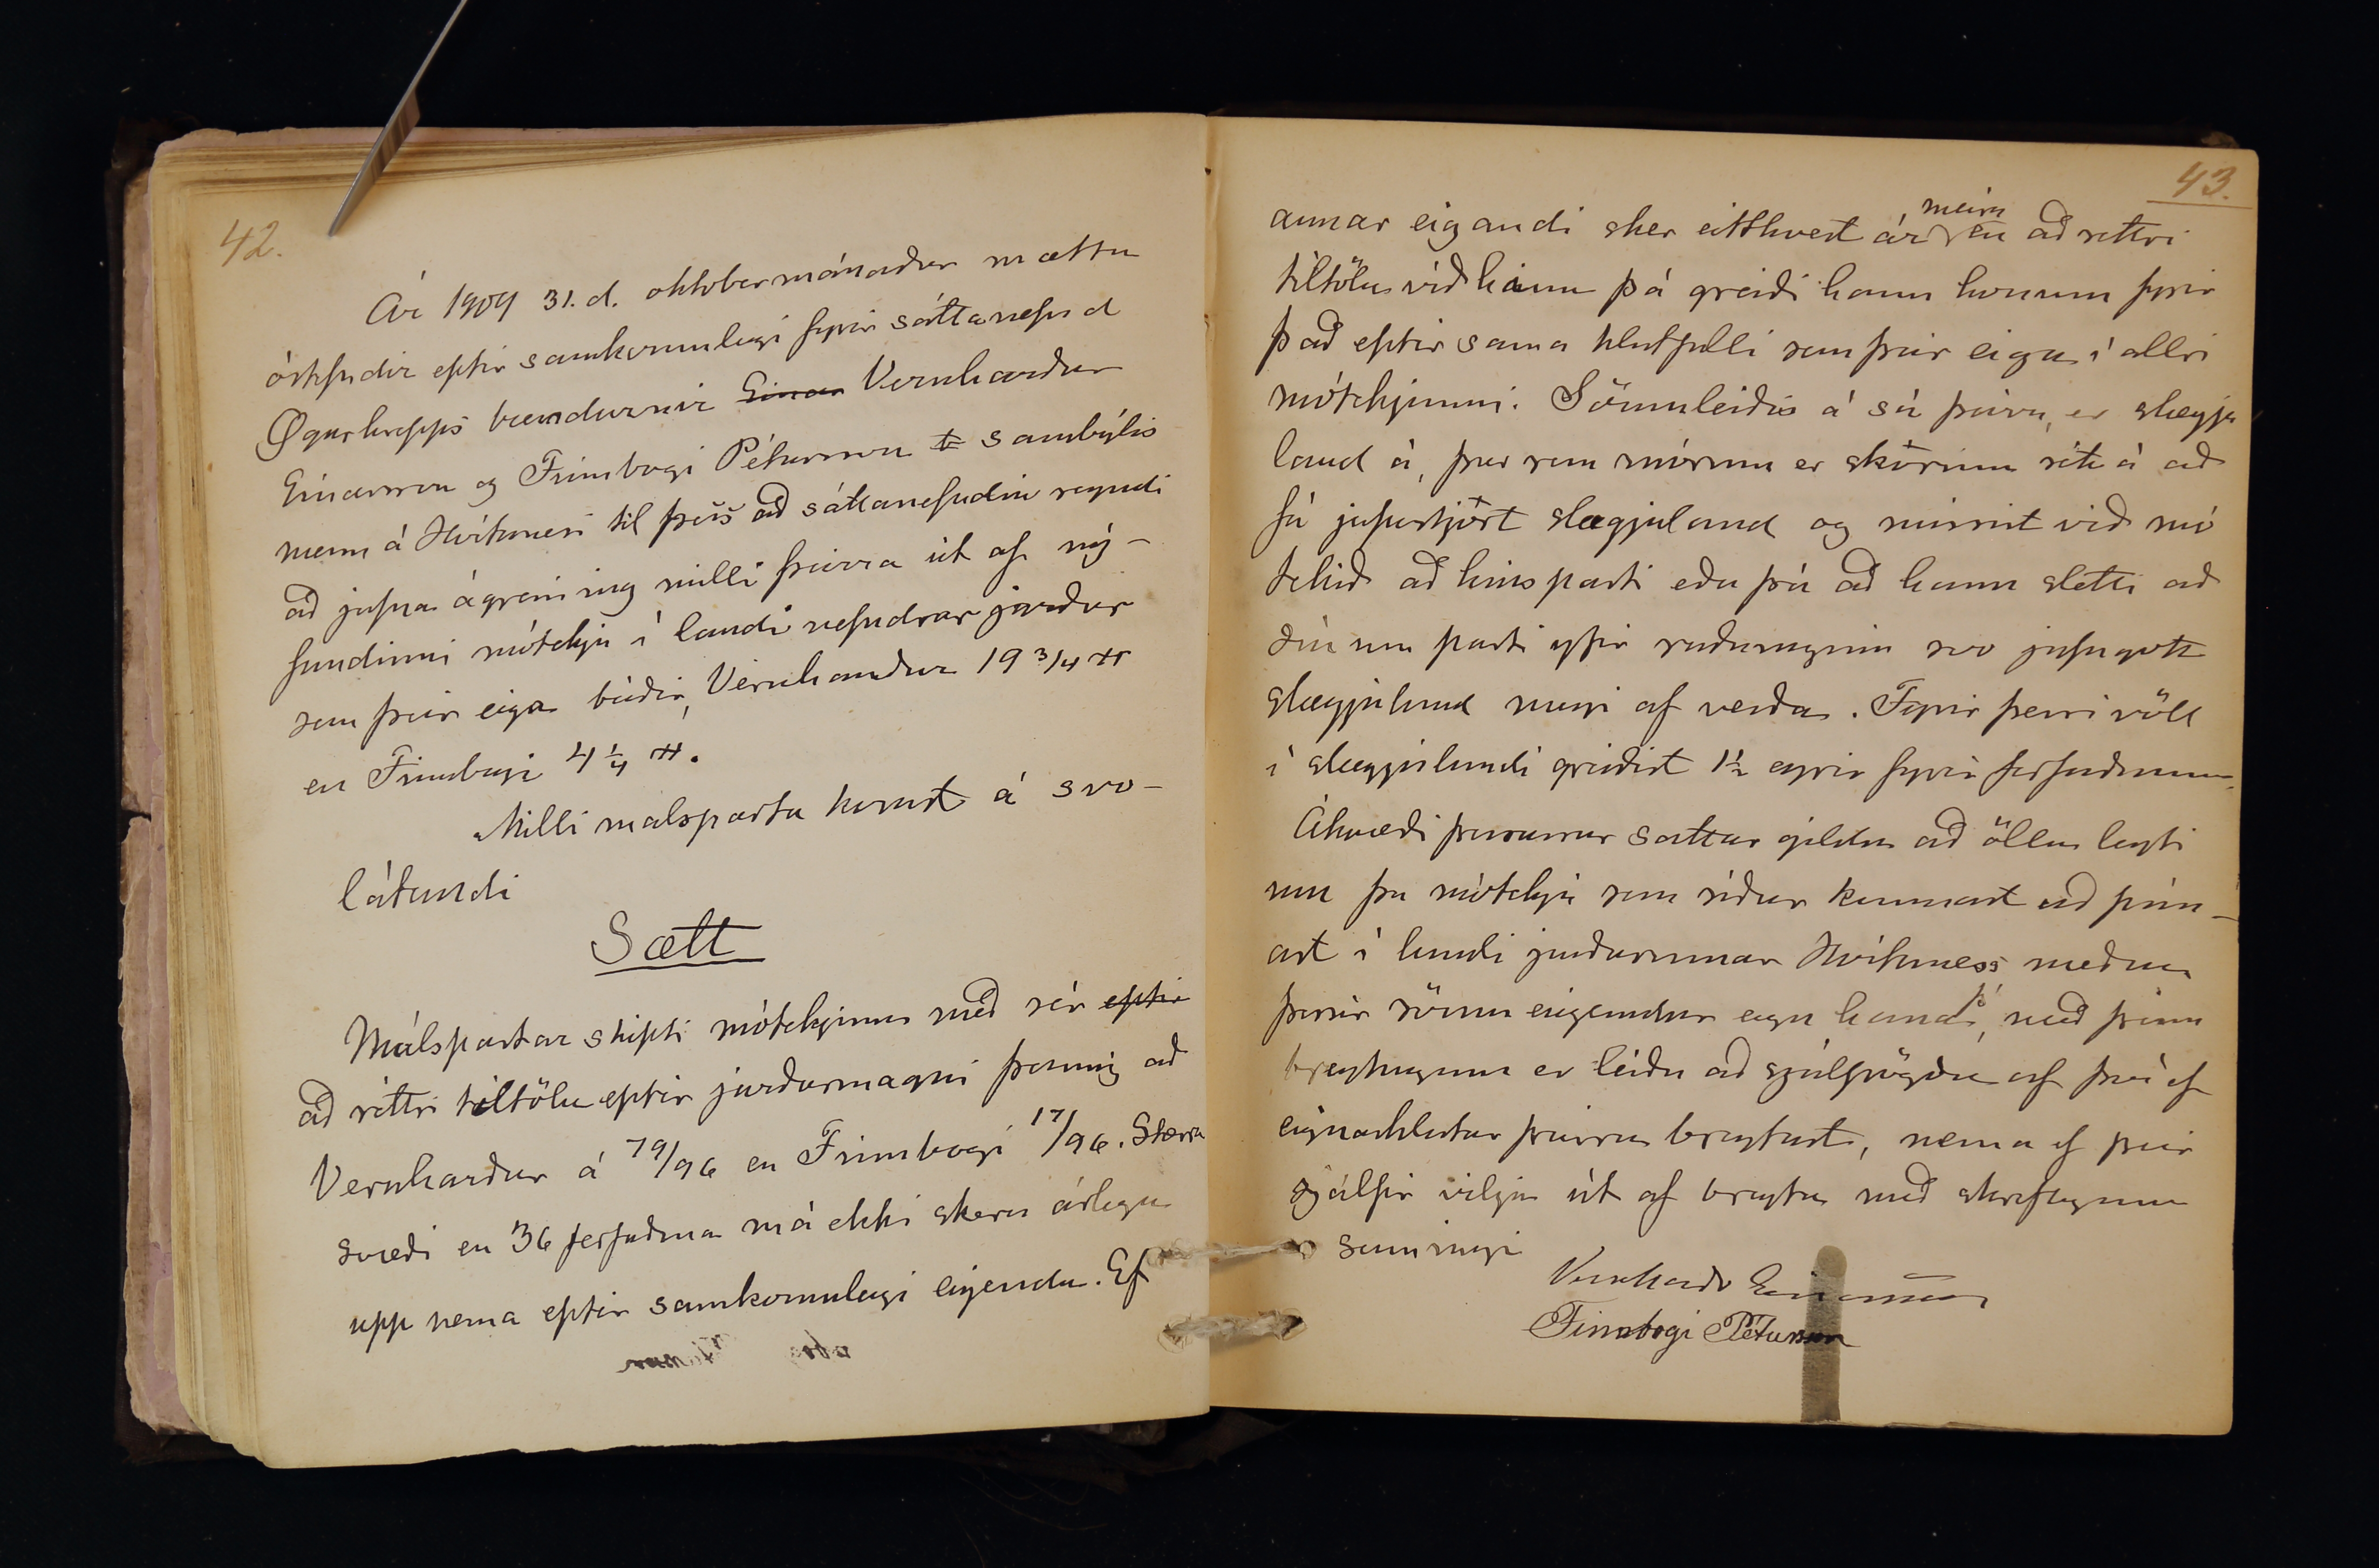 42.
Ár 1909 31. d. oktobermánaðar mættu
óstefndir eptir samkomulagi fyrir sáttanefnd
Øgurhrepps bændurnir Einar Vernharður
Einarsson og Finnbogi Pétursson sambýlis
menn á Hvítanesi til þess að sáttanefndin reyndi
að jafna ágreining milli þeirra út af ný-
fundinni mótekju í landi nefndrar jarðar
sem þeir eiga báðir, Vernharður 19 3/4 H
en Finnbogi 4 1/4 H.
Milli malsparta komst á svo-
látandi
Sætt
Málspartar skipti mótekjunni með sér eptir
að réttri tiltölu eptir jarðarmagni þannig að
Vernharður á 79/96 en Finnbogi 17/96. Stærra
svæði en 36 ferfaðma má ekki skera árlega
upp nema eptir samkomulagi eigenda. Ef
43.
annar eigandi sker eitthvert ár meira en að rettri
tiltölu við hinn þá greiði hann honum fyrir
það eptir sama hlutfalli sem þeir eiga í allri
mótekjunni. Sömuleiðis á sá þeirra, er slægju
land á, þar sem mórinn er skorinn rétt á að
fá jafnstjórt slægjuland og mist við mó
tekið að hins parti eða þá að hann sletti að
sínum parti yfir ruðninginn svo jafngott
slægjuland megi af verða. Fyrir þessi völl
í slægjulandi greiðist 1 1/2 eyrir fyrir ferfaðminn.
Ákvæði þessarar sattar gilda að öllu leyti
um þá mótekju sem síðar kynnast að finn-
ast í landi jarðarinnar Hvítaness meðan
þessir sömu eigendur eiga hana þó, með þeim
breytingum er leiða að sjálfsögðu af því ef
eignarhlutar þeirra breytast, nema ef þeir
sjálfir vilja út af breyta með skriflegum
samningi
Vernharðr Einarsson
Finnbogi Pétursson